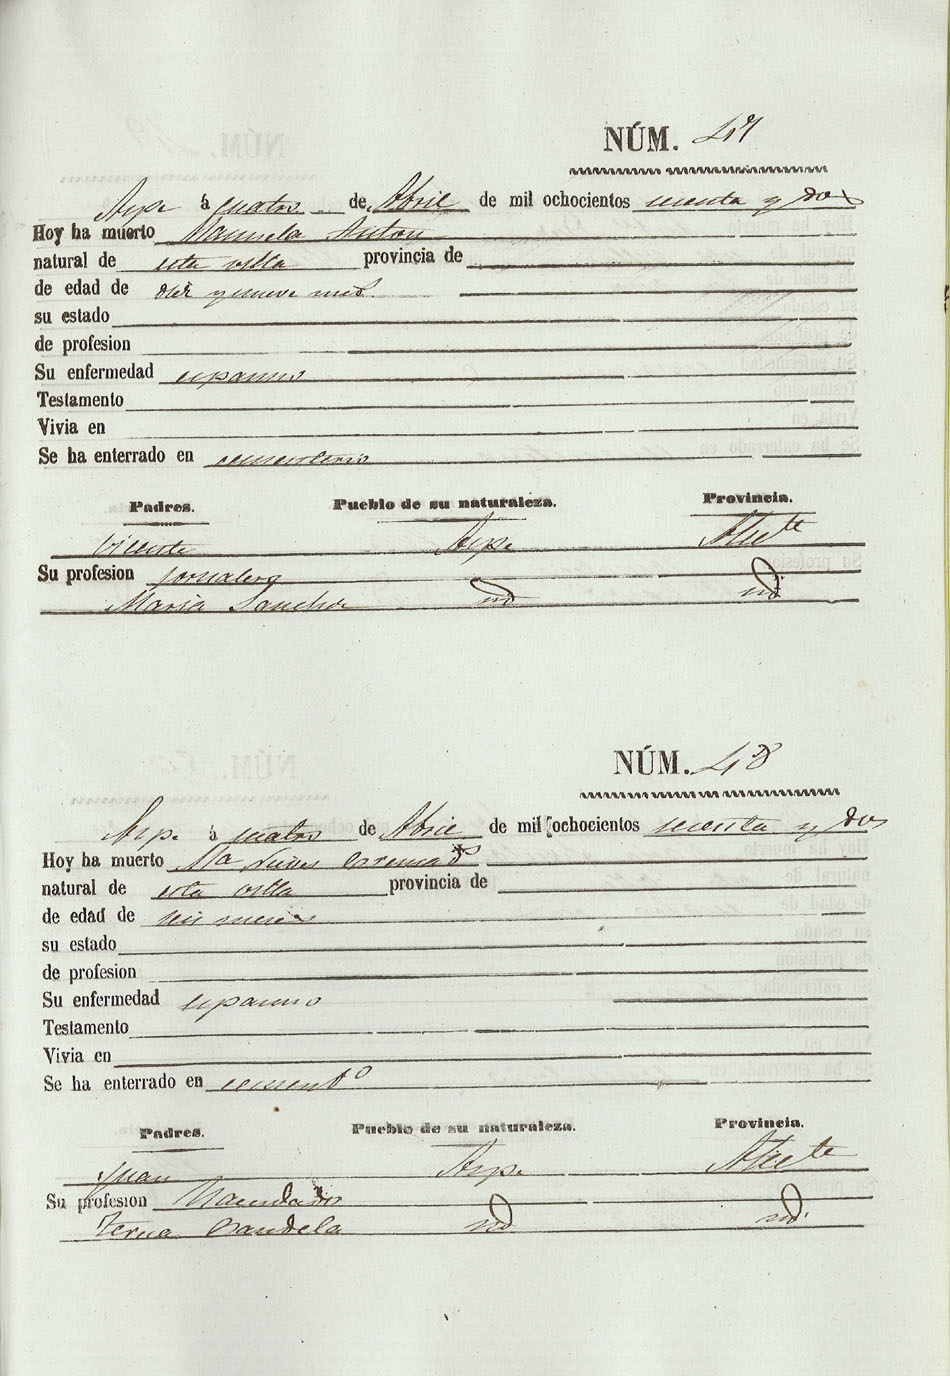 NÚM. 47
Aspe á cuatro de Abril de mil ochocientos sesenta y dos
Hoy ha muerto Manuela Anton
natural de esta villa provincia de
de edad de diez y nueve mes
su estado
de profesion
Su enfermedad espasmo
Testamento
Vivia en
Se ha enterrado en cementerio
Padres. Pueblo de su naturaleza. Provincia.
Vicente Aspe Alicte
Su profesion jornalero
Maria Sanchez id id
NÚM. 48
Aspe á cuatro de Abril de mil ochocientos sesenta y dos
Hoy ha muerto Ma Nieves Cremads
natural de esta villa provincia de
de edad de seis meses
su estado
de profesion
Su enfermedad espasmo
Testamento
Vivia en
Se ha enterrado en cemento
Padres. Pueblo de su naturaleza. Provincia.
Juan Aspe Alicte
Su profesion
Candela id id